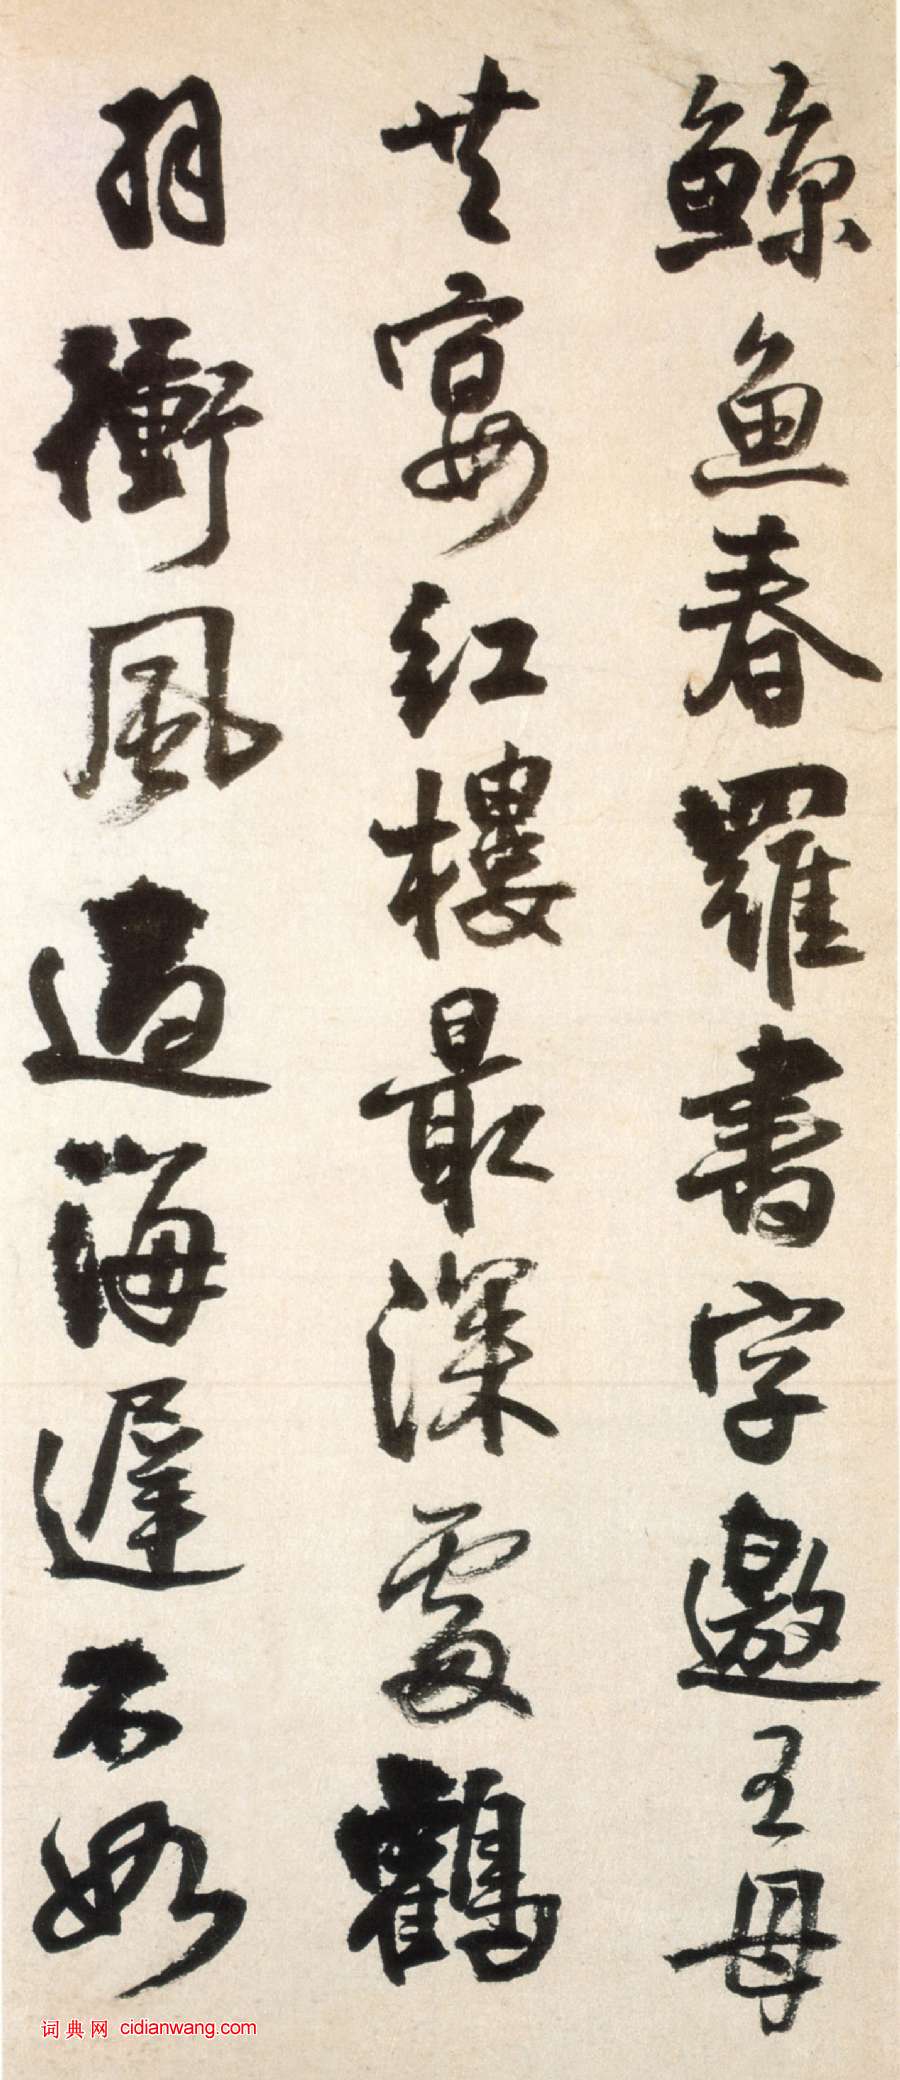 鯨魚春羅書字邀王母
共宴紅樓最深處鶴
羽衝風過海遲不如
词典网 cidianwang.com